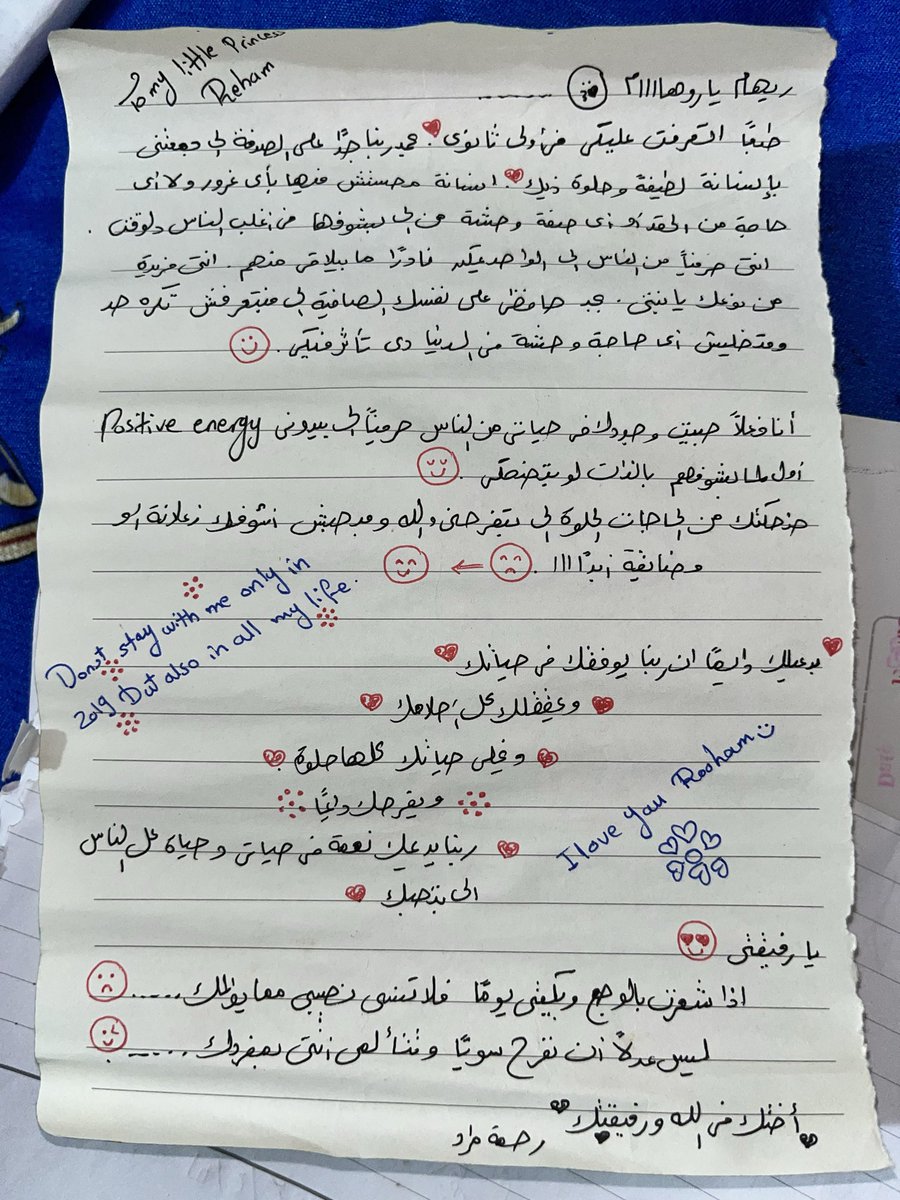 To my little Princess
Reham
ريهام يا روهاااام ......
طبعًا اتعرفت عليكي في أولى ثانوي. بحمد ربنا جدًا على الصدفة الى جمعتني
بإنسانة لطيفة وحلوة زيك. انسانة محستش فيها بأى غرور ولا اى
حاجة من الحقد أو أى صفة وحشة من الى بشوفها فى أغلب الناس دلوقتى.
انتى حرفياً من الناس الى الواحد نادرًا ما بيلاقى منهم. انتى فريدة
من نوعك يا بنتى. بجد حافظى على نفسك الصافية الى مبتعرفش تكره حد
ومتخليش اى حاجة وحشة فى الدنيا دى تأثر فيكى.
أنا فعلاً حبيت وجودك فى حياتى من الناس حرفياً الى بيدونى Positive energy
أول لما بشوفهم بالذات لو بتضحكى.
ضحكتك من الحاجات الحلوة الى بتفرحنى والله ومبحبش اشوفك زعلانة او
مضايقة أبدًاااا.
Donot stay with me only in
2019 But also in all my life.
بدعيلك دايمًا ان ربنا يوفقك فى حياتك
ويحققلك كل احلامك
ويخلى حياتك كلها حلوة
ويفرحك دايمًا
I love you Rooham
ربنا يديمك نعمة فى حياتى وحياة كل الناس
الى بتحبك
يا رفيقتى
اذا شعرتِ بالوجع وبكيتى يومًا فلا تنسى نصيبى مما يؤلمك .....
ليس عدلاً أن نفرح سويًا وتتألمى انتى بمفردك .....
أختك فى الله ورفيقتك
رحمة مراد